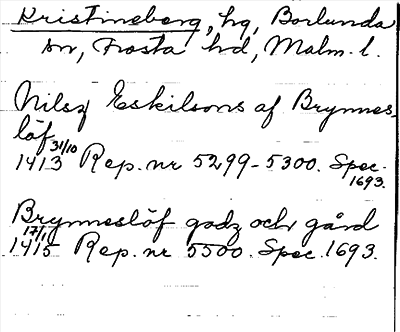 Kristineberg, hg, Borlunda
sn, Frosta hd, Malm. l.
Nilsz Eskilsons af Brynnes-
löf
31/10
1413 Rep. nr 5299-5300. Spec.
1693.
Brynneslöf godz och gård
17/1
1415 Rep. nr 5500. Spec. 1693.